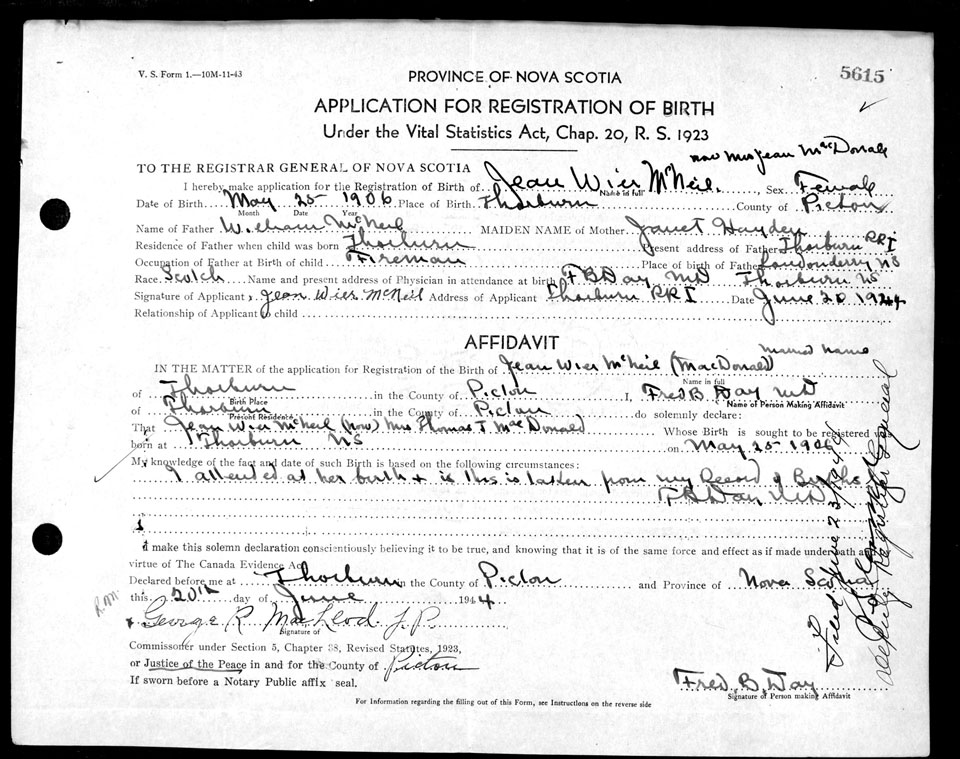 V. S. Form 1.—10M-11-43
5615
PROVINCE OF NOVA SCOTIA
APPLICATION FOR REGISTRATION OF BIRTH
Under the Vital Statistics Act, Chap. 20, R. S. 1923
now Mrs Jean MacDonald
TO THE REGISTRAR GENERAL OF NOVA SCOTIA
I hereby make application for the Registration of Birth of Jean Wier McNeil. Sex Female
Name in full
Date of Birth May 25 - 1906 Place of Birth Thorburn County of Pictou
Month Date Year
Name of Father William McNeil MAIDEN NAME of Mother Janet Hayden
Residence of Father when child was born Thorburn Present address of Father Thorburn RR1
Occupation of Father at Birth of child Fireman Place of birth of Father Londonderry NS
Race Scotch Name and present address of Physician in attendance at birth F B Day MD Thorburn NS
Signature of Applicant Jean Wier McNeil Address of Applicant Thorburn RR1 Date June 20 1944
Relationship of Applicant to child
AFFIDAVIT
Married Name
IN THE MATTER of the application for Registration of the Birth of Jean Wier McNeil (MacDonald)
Name in full
of Thorburn in the County of Pictou I, Fred B Day MD
Birth Place Name of Person Making Affidavit
of Thorburn in the County of Pictou do solemnly declare:
Present Residence
That Jean Wier McNeil (now) Mrs Thomas T MacDonald Whose Birth is sought to be registered was
born at Thorburn NS on May 25 - 1906
My knowledge of the fact and date of such Birth is based on the following circumstances:
I attended at her birth + is this is taken from my Record of Births
F B Day MD
I make this solemn declaration conscientiously believing it to be true, and knowing that it is of the same force and effect as if made under oath and
virtue of The Canada Evidence Act
Declared before me at Thorburn in the County of Pictou and Province of Nova Scotia
this 20th day of June 1944
R.M.
George R MacLeod J. P.
Signature of
Commissioner under Section 5, Chapter 38, Revised Statutes, 1923,
or Justice of the Peace in and for the County of Pictou
If sworn before a Notary Public affix seal.
Fred B. Day
Signature of Person making Affidavit
For Information regarding the filling out of this Form, see Instructions on the reverse side
Filed June 23/1944
Deputy Registrar General